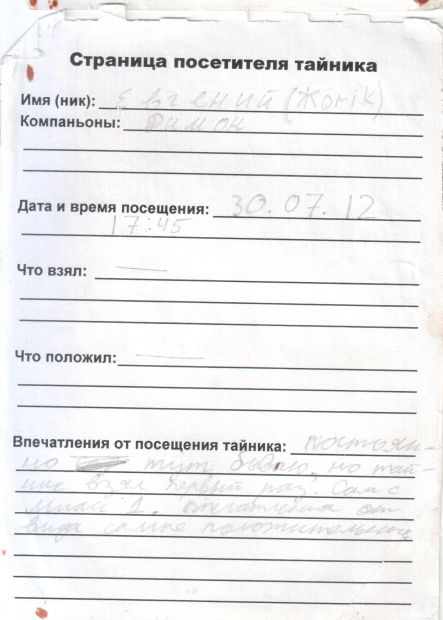 Страница посетителя тайника
Имя (ник): Евгений (Жоrik)
Компаньоны: Димон
Дата и время посещения: 30.07.12
17:45
Что взял: —
Что положил: —
Впечатления от посещения тайника: постоян-
но тут бываю, но тай-
ник взял первый раз. Сам с
впечатления от
вида самые положительные